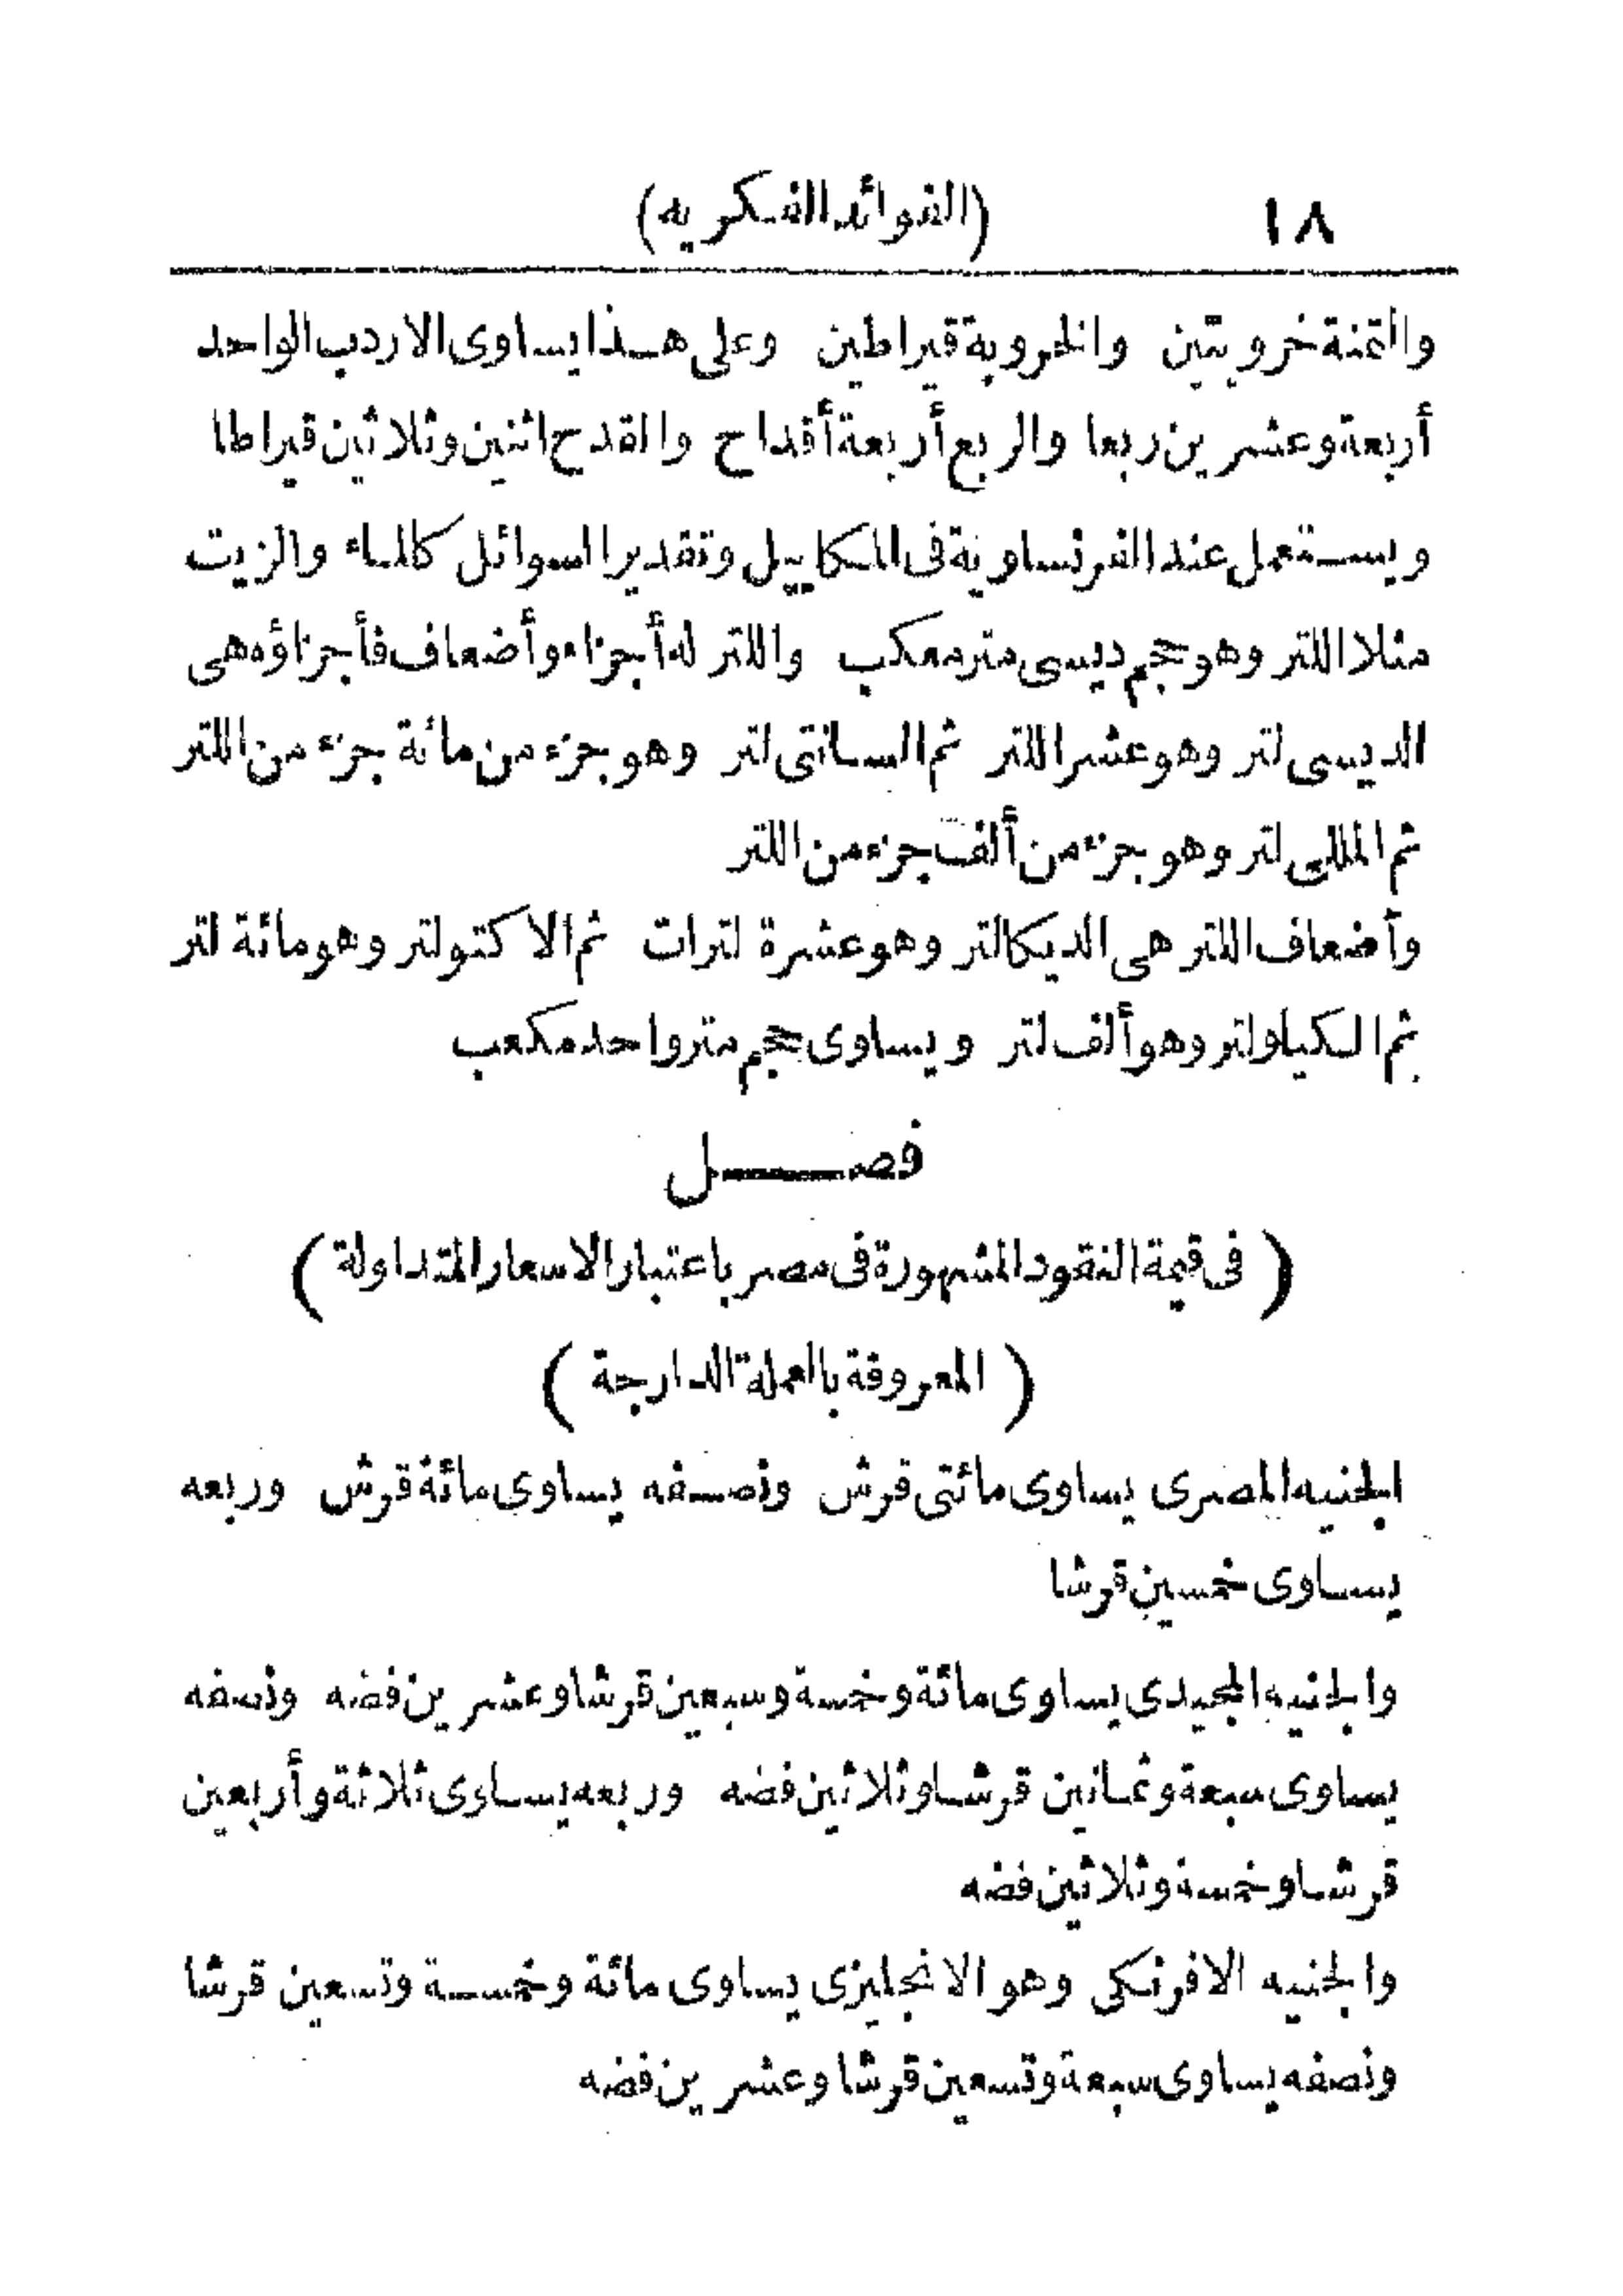 ١٨ (الفوائد الفكريه)
والثمنة خروبتين والخروبة قيراطين وعلى هذا يساوى الاردب الواحد
أربعة وعشرين ربعا والربع أربعة أقداح والقدح اثنين وثلاثين قيراطا
ويستعمل عند الفرنساوية فى المكاييل وتقدير السوائل كالماء والزيت
مثلا اللتر وهو حجم ديسى متر معكب واللتر له أجزاء وأضعاف فأجزاؤه هى
الديسى لتر وهو عشر اللتر ثم السانتى لتر وهو جزء من مائة جزء من اللتر
ثم المللى لتر وهو جزء من ألف جزء من اللتر
وأضعاف اللتر هى الديكالتر وهو عشرة لترات ثم الاكتولتر وهو مائة لتر
ثم الكيلولتر وهو ألف لتر ويساوى حجم متر واحد مكعب
فصل
(فى قيمة النقود المشهورة فى مصر باعتبار الاسعار المتداولة)
(المعروفة بالعملة الدارجة)
الجنيه المصرى يساوى مائتى قرش ونصفه يساوى مائة قرش وربعه
يساوى خمسين قرشا
والجنيه المجيدى يساوى مائة وخمسة وسبعين قرشا وعشرين فضه ونصفه
يساوى سبعة وثمانين قرشا وثلاثين فضه وربعه يساوى ثلاثة وأربعين
قرشا وخمسة وثلاثين فضه
والجنيه الافرنكى وهو الانجليزى يساوى مائة وخمسة وتسعين قرشا
ونصفه يساوى سبعة وتسعين قرشا وعشرين فضه